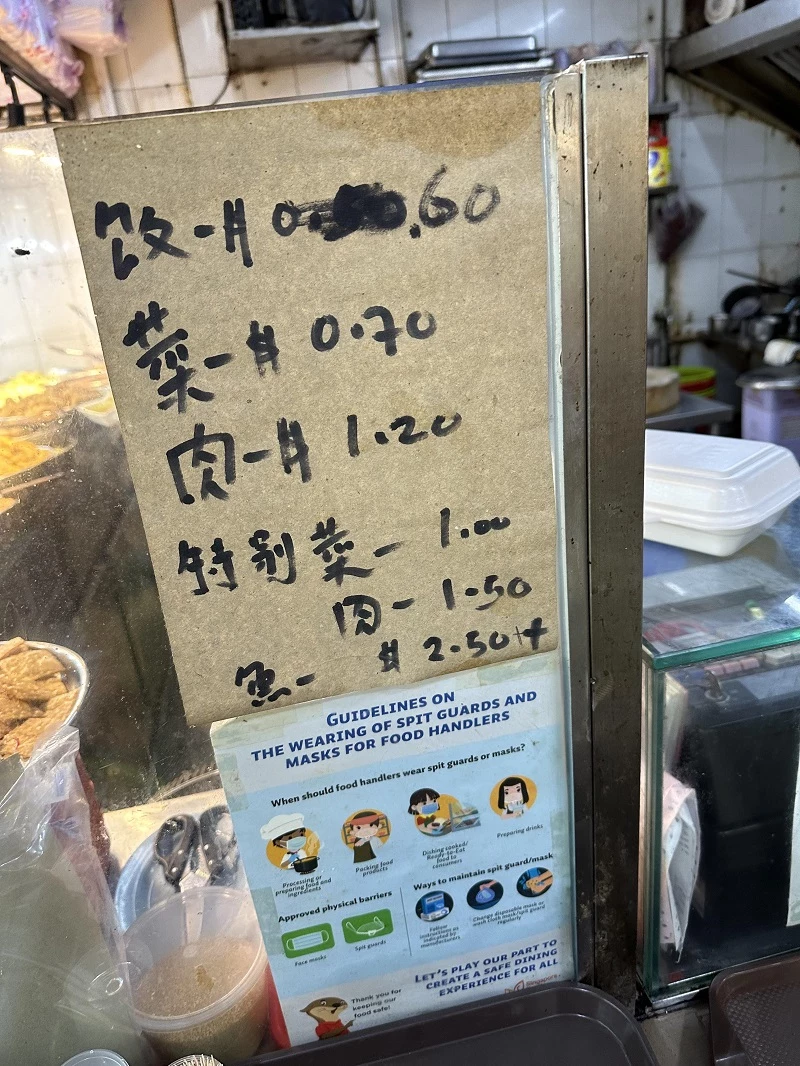 饭-$ 0.60
菜-$ 0.70
肉-$ 1.20
特别菜- 1.00
肉- 1.50
魚- $ 2.50++
GUIDELINES ON
THE WEARING OF SPIT GUARDS AND
MASKS FOR FOOD HANDLERS
When should food handlers wear spit guards or masks?
Processing or
preparing food and
ingredients
Packing food
products
Dishing cooked/
Ready-to-Eat
food to
consumers
Preparing drinks
Approved physical barriers
Face masks
Spit guards
Ways to maintain spit guard/mask
Follow
instructions as
indicated by
manufacturers
Change disposable mask or
wash cloth mask/spit guard
regularly
Thank you for
keeping our
food safe!
LET'S PLAY OUR PART TO
CREATE A SAFE DINING
EXPERIENCE FOR ALL